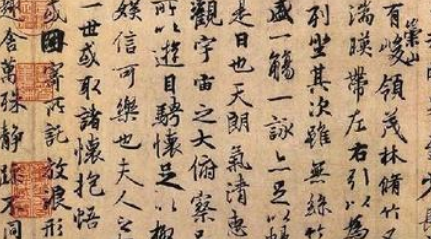 有崇山峻領茂林脩竹
湍暎帶左右引以為
列坐其次雖無絲竹
盛一觴一詠亦足以暢
是日也天朗氣清惠
觀宇宙之大俯察品
所以遊目騁懷足以極
娛信可樂也夫人之
一世或取諸懷抱悟
或因寄所託放浪形
趣舍萬殊靜躁不同